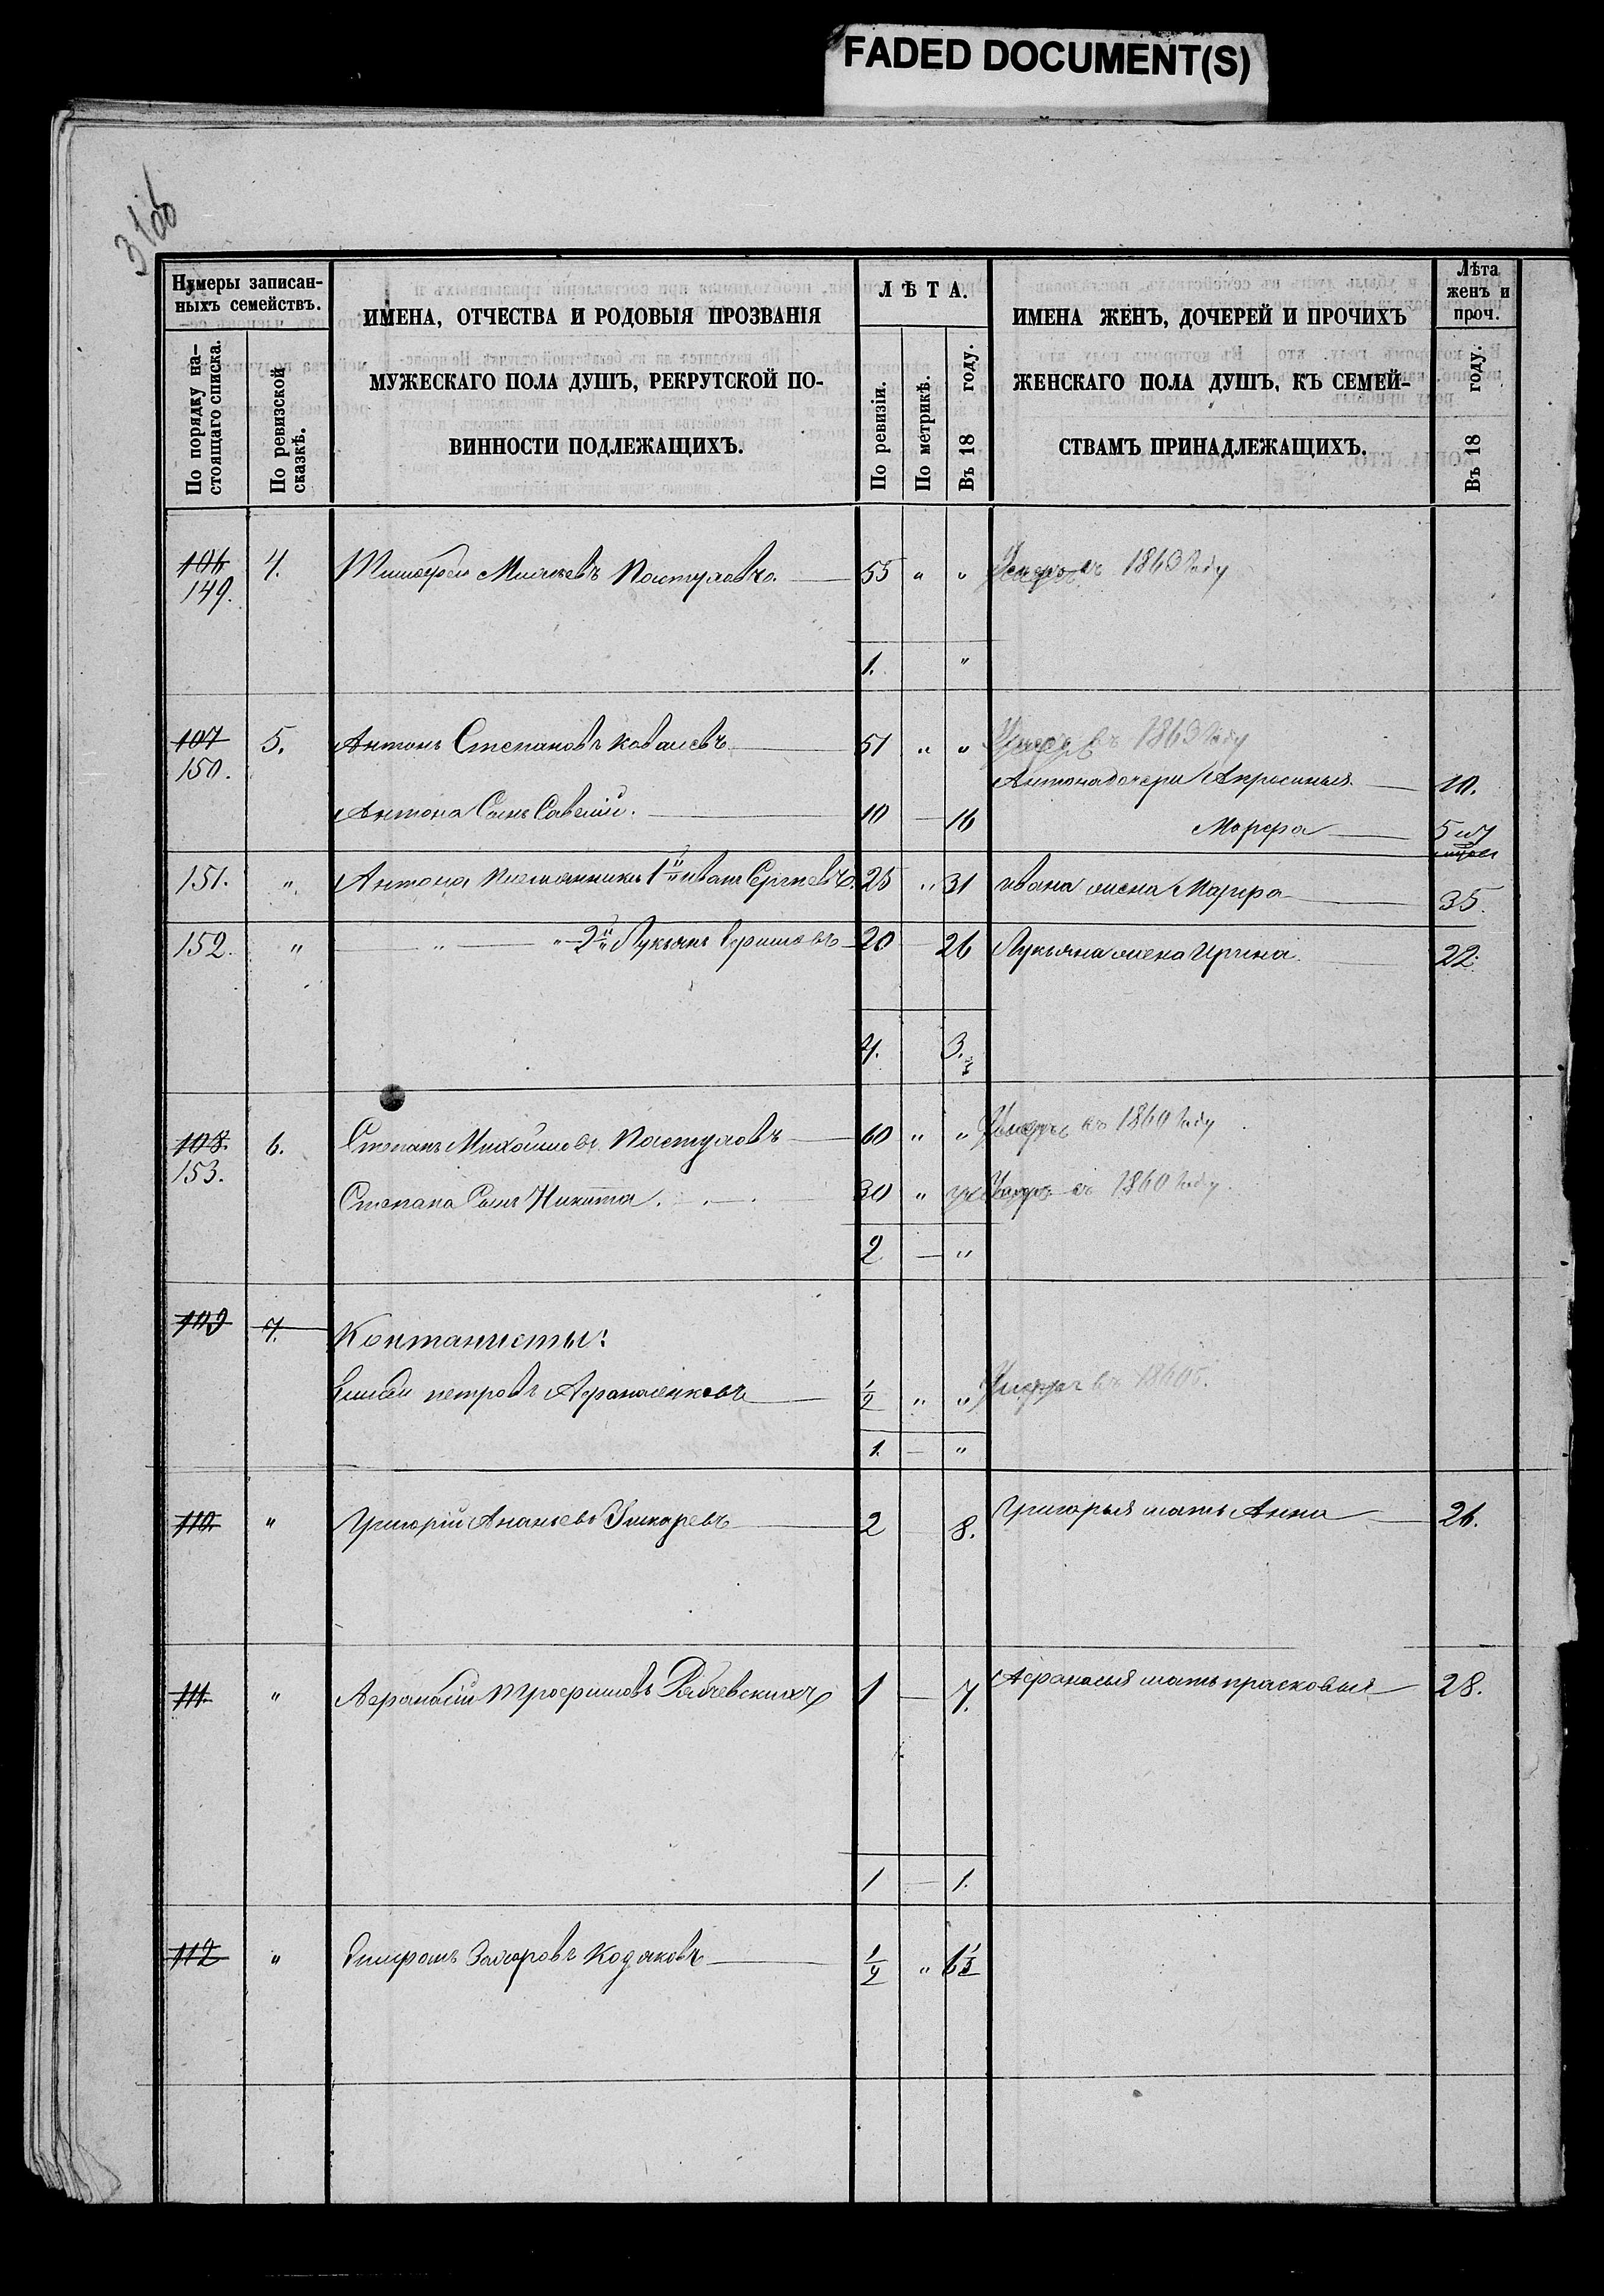 FADED DOCUMENT(S)
31об
Нумеры записан-
ныхъ семействъ.
По порядку на-
стоящаго списка.
По ревизской
сказкѣ.
ИМЕНА, ОТЧЕСТВА И РОДОВЫЯ ПРОЗВАНІЯ
МУЖЕСКАГО ПОЛА ДУШЪ, РЕКРУТСКОЙ ПО-
ВИННОСТИ ПОДЛЕЖАЩИХЪ.
ЛѢТА.
По ревизіи.
По метрикѣ.
Въ 18 году.
ИМЕНА ЖЕНЪ, ДОЧЕРЕЙ И ПРОЧИХЪ
ЖЕНСКАГО ПОЛА ДУШЪ, КЪ СЕМЕЙ-
СТВАМЪ ПРИНАДЛЕЖАЩИХЪ.
Лѣта
женъ и
проч.
Въ 18 году.
106 4. Тимофей Пастуховъ 55 " " Умеръ въ 1860 году
149.
1. "
107 5. Антонъ Степановъ Ковалевъ 51 " " Умеръ въ 1860 году
150.
Антона дочери Апросинья 10.
Антона Сынъ Савелій. 10 — 16
Марфа 5 и 7
151. " Антона племянники 1й иванъ Сергѣевъ. 25 " 31 ивана жена Марфа 35.
152. " " — " 2й Лукьянъ 20 26 Лукьяна жена Ирина 22.
4. 3.
108. 6. Степанъ Михайловъ Пастуховъ 60 " " Умеръ въ 1860 году
153.
Степана Сынъ Никита. 30 " Умеръ въ 1860 году.
2 — "
109 7. Контанисты:
петровъ Афанасенковъ 1/2 " " Умеръ въ 1860г.
1. — "
110. " Григорій Ананьевъ 2 8. Григорья мать Анна 26.
111. " Афанасій Трофимовъ 1 — 7. Афанасья мать прасковья 28.
1 — 1.
112 " Захаровъ 1/4 " 6 1/3